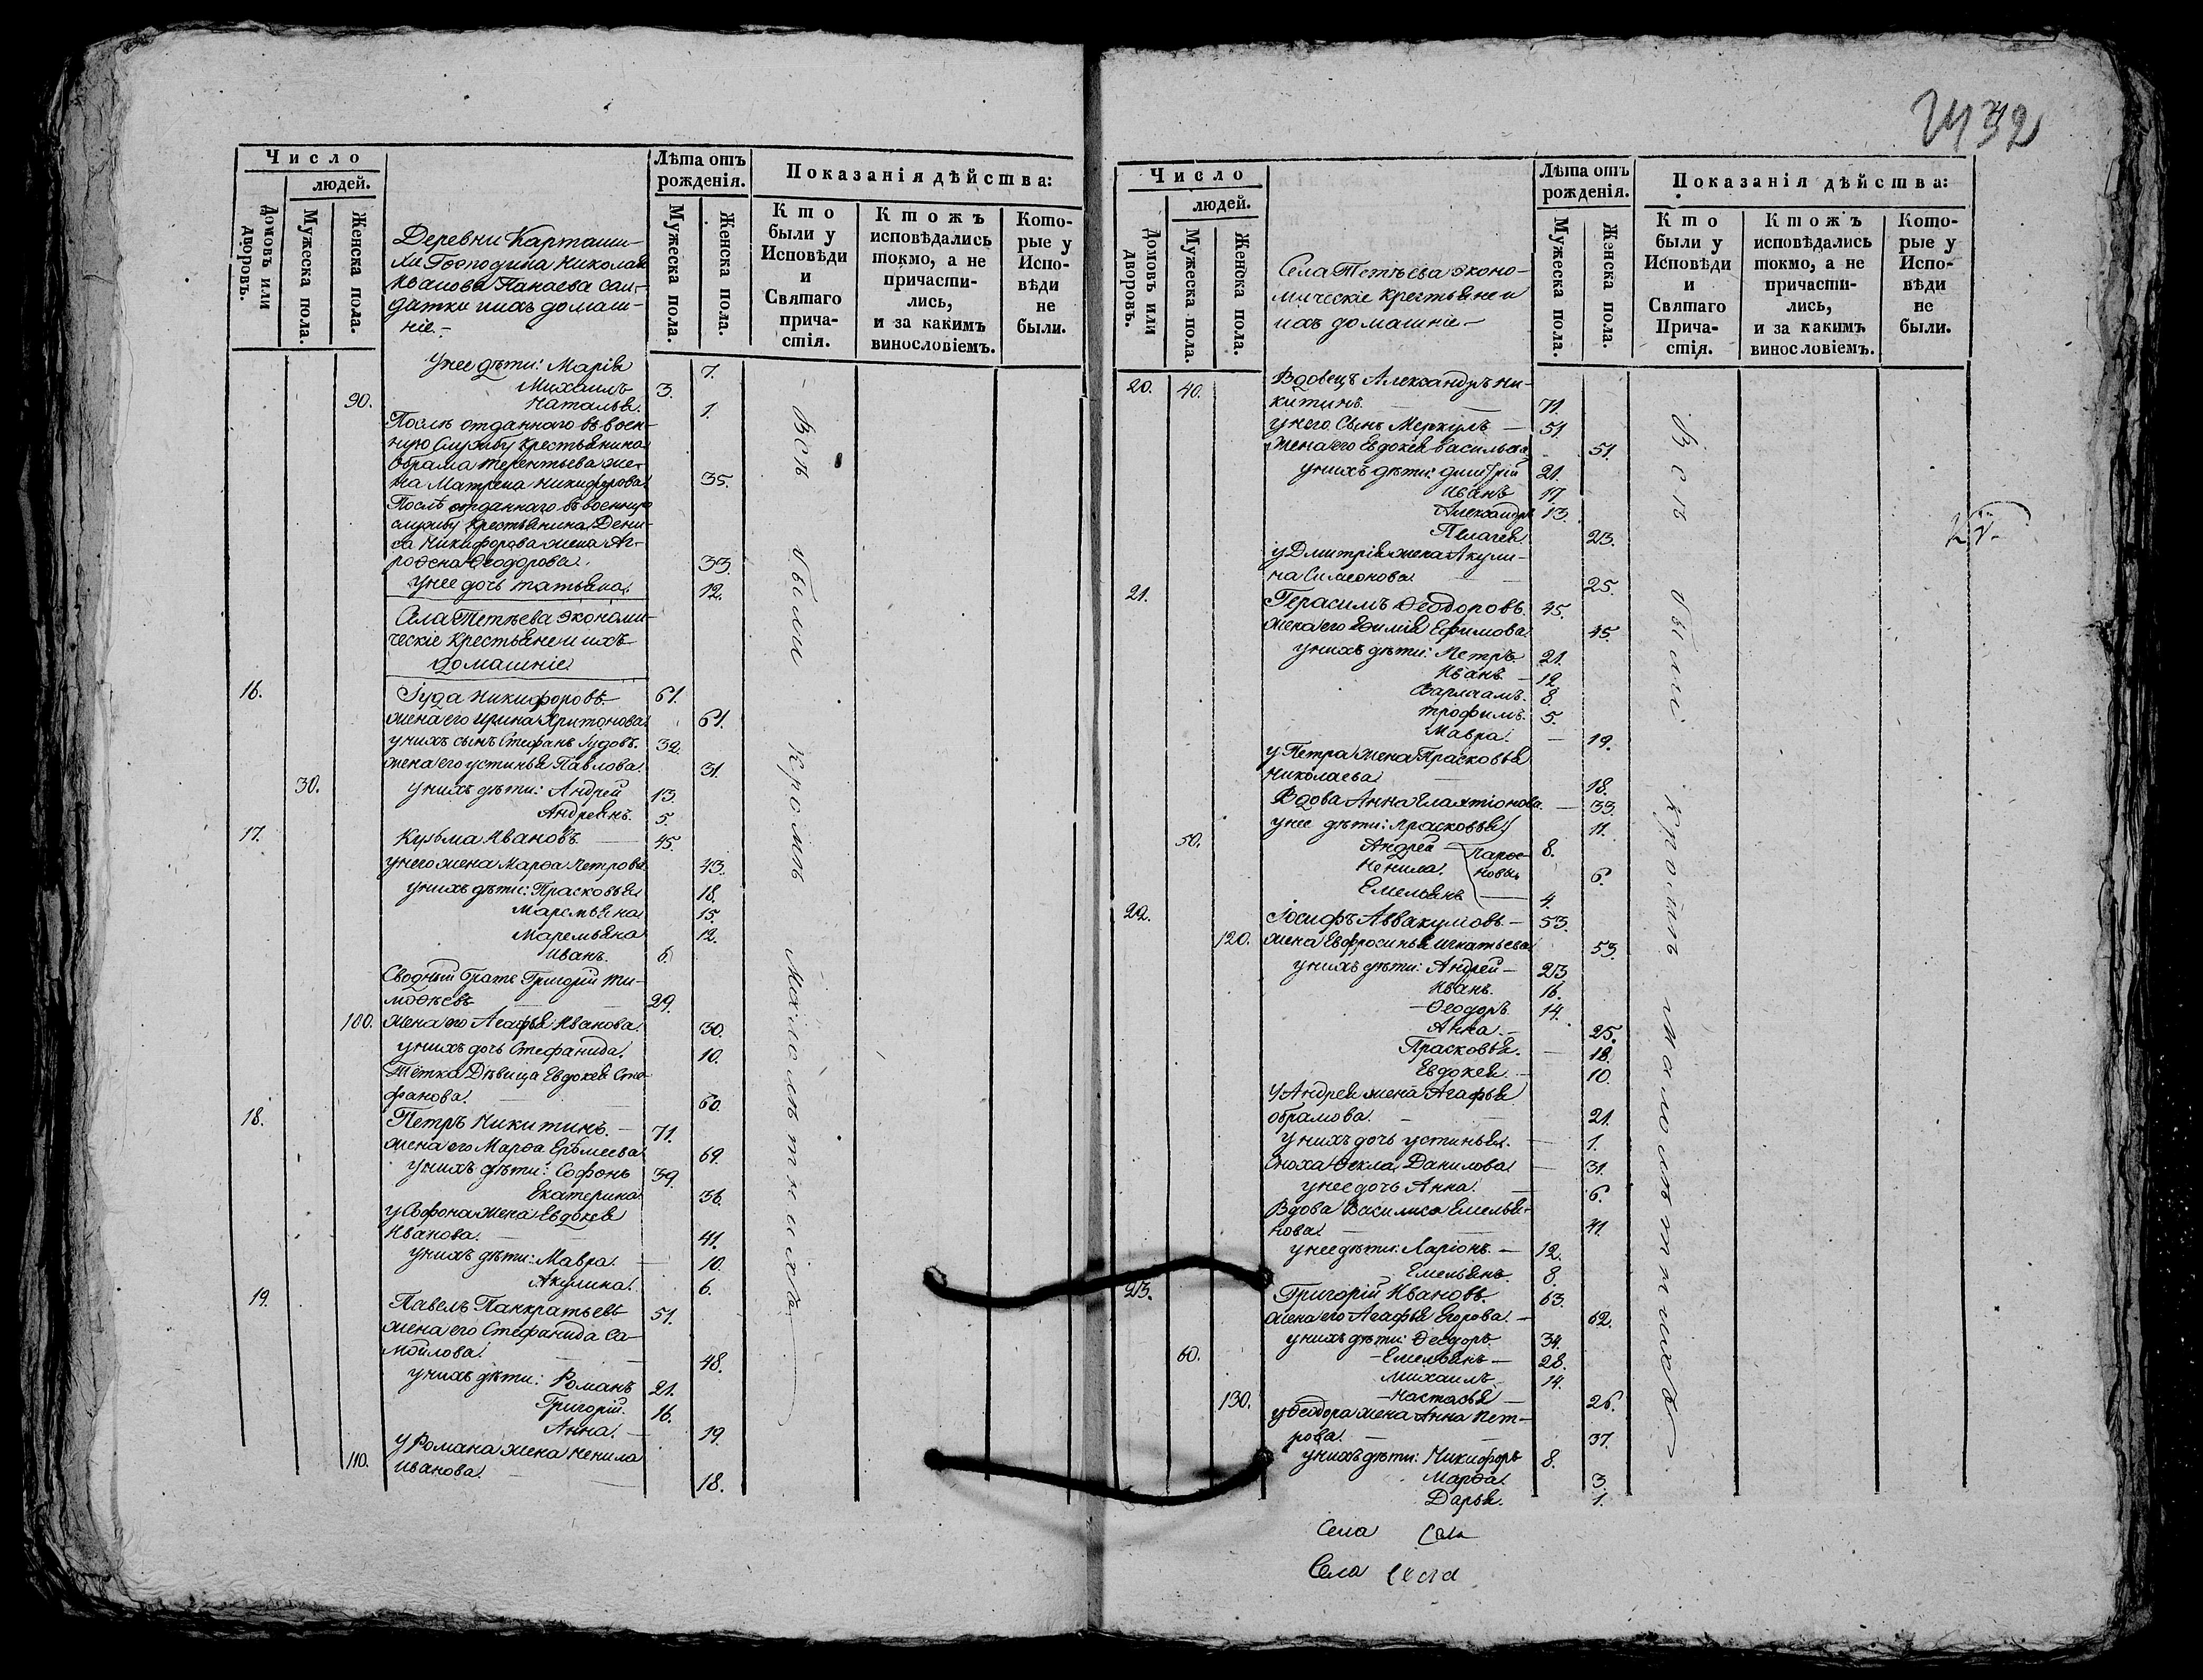 Число
людей.
Домовъ или дворовъ.
Мужеска пола.
Женска пола.
Деревни Карташи-
хи Господина Николая
Иванова Панаева сол-
датки и ихъ домаш-
ніе
Лѣта отъ рожденія.
Мужеска пола.
Женска пола.
Показанія дѣйства:
Кто были у Исповѣди и Святаго причастія.
Ктожъ исповѣдались токмо, а не причастились, и за какимъ винословіемъ.
Которые у Исповѣди не были.
У нее дѣти: Марія 7.
Михаилъ 3.
90. Наталья. 1.
Послѣ отданнаго въ воен-
ную службу крестьянина
Обрама Терентьева же-
на Матрена Никифорова 35.
Послѣ отданнаго въ военную
службу крестьянина Дени-
са Никифорова жена Аг-
рофена Ѳеодорова. 33.
У нее дочь Татьяна. 12.
Села Тетѣева экономи-
ческіе крестьяне и ихъ
домашніе
16. Іуда Никифоровъ 61.
жена его Ирина Харитонова 61.
у нихъ сынъ Стефанъ Іудовъ. 32.
жена его Устинья Павлова. 31.
30. у нихъ дѣти: Андрей 13.
Андреянъ. 5.
17. Кузьма Ивановъ 45.
у него жена Марѳа Петрова 43.
у нихъ дѣти: Прасковья 18.
Маремьяна 15.
Маремьяна 12.
Иванъ. 6.
Сводный братъ Григорій Ти-
моѳѣевъ 29.
100. жена его Агафья Иванова. 30.
у нихъ дочь Стефанида. 10.
Тётка дѣвица Евдокея Сте-
фанова. 60.
18. Петръ Никитинъ. 71.
жена его Марѳа Ерѳмеева 69.
у нихъ дѣти: Софонъ 39.
Екатерина 36.
у Софона жена Евдокея
Иванова. 41.
у нихъ дѣти: Мавра. 10.
Акулина. 6.
19. Павелъ Панкратьевъ 51.
жена его Стефанида Са-
мойлова. 48.
у нихъ дѣти: Романъ 21.
Григорій. 16.
Анна. 19.
у Романа жена Ненила
110. Иванова. 18.
Всѣ были кромѣ малолѣтнихъ
Число
людей.
Домовъ или дворовъ.
Мужеска пола.
Женска пола.
Села Тетѣева эконо-
мическіе крестьяне и
ихъ домашніе
Лѣта отъ рожденія.
Мужеска пола.
Женска пола.
Показанія дѣйства:
Кто были у Исповѣди и Святаго Причастія.
Ктожъ исповѣдались токмо, а не причастились, и за какимъ винословіемъ.
Которые у Исповѣди не были.
20. 40. Вдовецъ Александръ Ни-
китинъ. 71.
у него сынъ Меркулъ 51.
жена его Евдокея Васильева 51.
у нихъ дѣти: Дмитрій 21.
Иванъ 17.
Александръ 13.
Пелагея 23.
у Дмитрія жена Акули-
на Симеонова 25.
21. Герасимъ Ѳеодоровъ. 45.
жена его Ефимія Ефимова 45.
у нихъ дѣти: Петръ 21.
Иванъ 12
Варлаамъ. 8.
Трофимъ. 5.
Мавра. 19.
у Петра жена Прасковья
Николаева 18.
Вдова Анна Галактіонова 33.
у нее дѣти: Прасковья 11.
50. Андрей 8.
Ненила. 6.
Емельянъ 4.
22. Іосифъ Аввакумовъ 53.
120. жена Евфросинья Игнатьева 53.
у нихъ дѣти: Андрей 23
Иванъ. 16.
Ѳеодоръ. 14.
Анна. 25.
Прасковья. 18.
Евдокея. 10.
У Андрея жена Агафья
Обрамова. 21.
у нихъ дочь Устинья. 1.
Сноха Ѳекла Данилова 31.
у нее дочь Анна. 6.
Вдова Василиса Емелья-
нова. 41.
у нее дѣти: Ларіонъ. 12.
Емельянъ. 8.
23. Григорій Ивановъ. 63.
жена его Агафья Егорова. 62.
у нихъ дѣти: Ѳеодоръ. 34.
60. Емельянъ 28.
Михаилъ 14.
130. Настасья 26.
у Ѳеодора жена Анна Пет-
рова. 37.
у нихъ дѣти: Никифоръ 8.
Марѳа. 3.
Дарья. 1.
Всѣ были кромѣ малолѣтнихъ
Села Села
Села Села